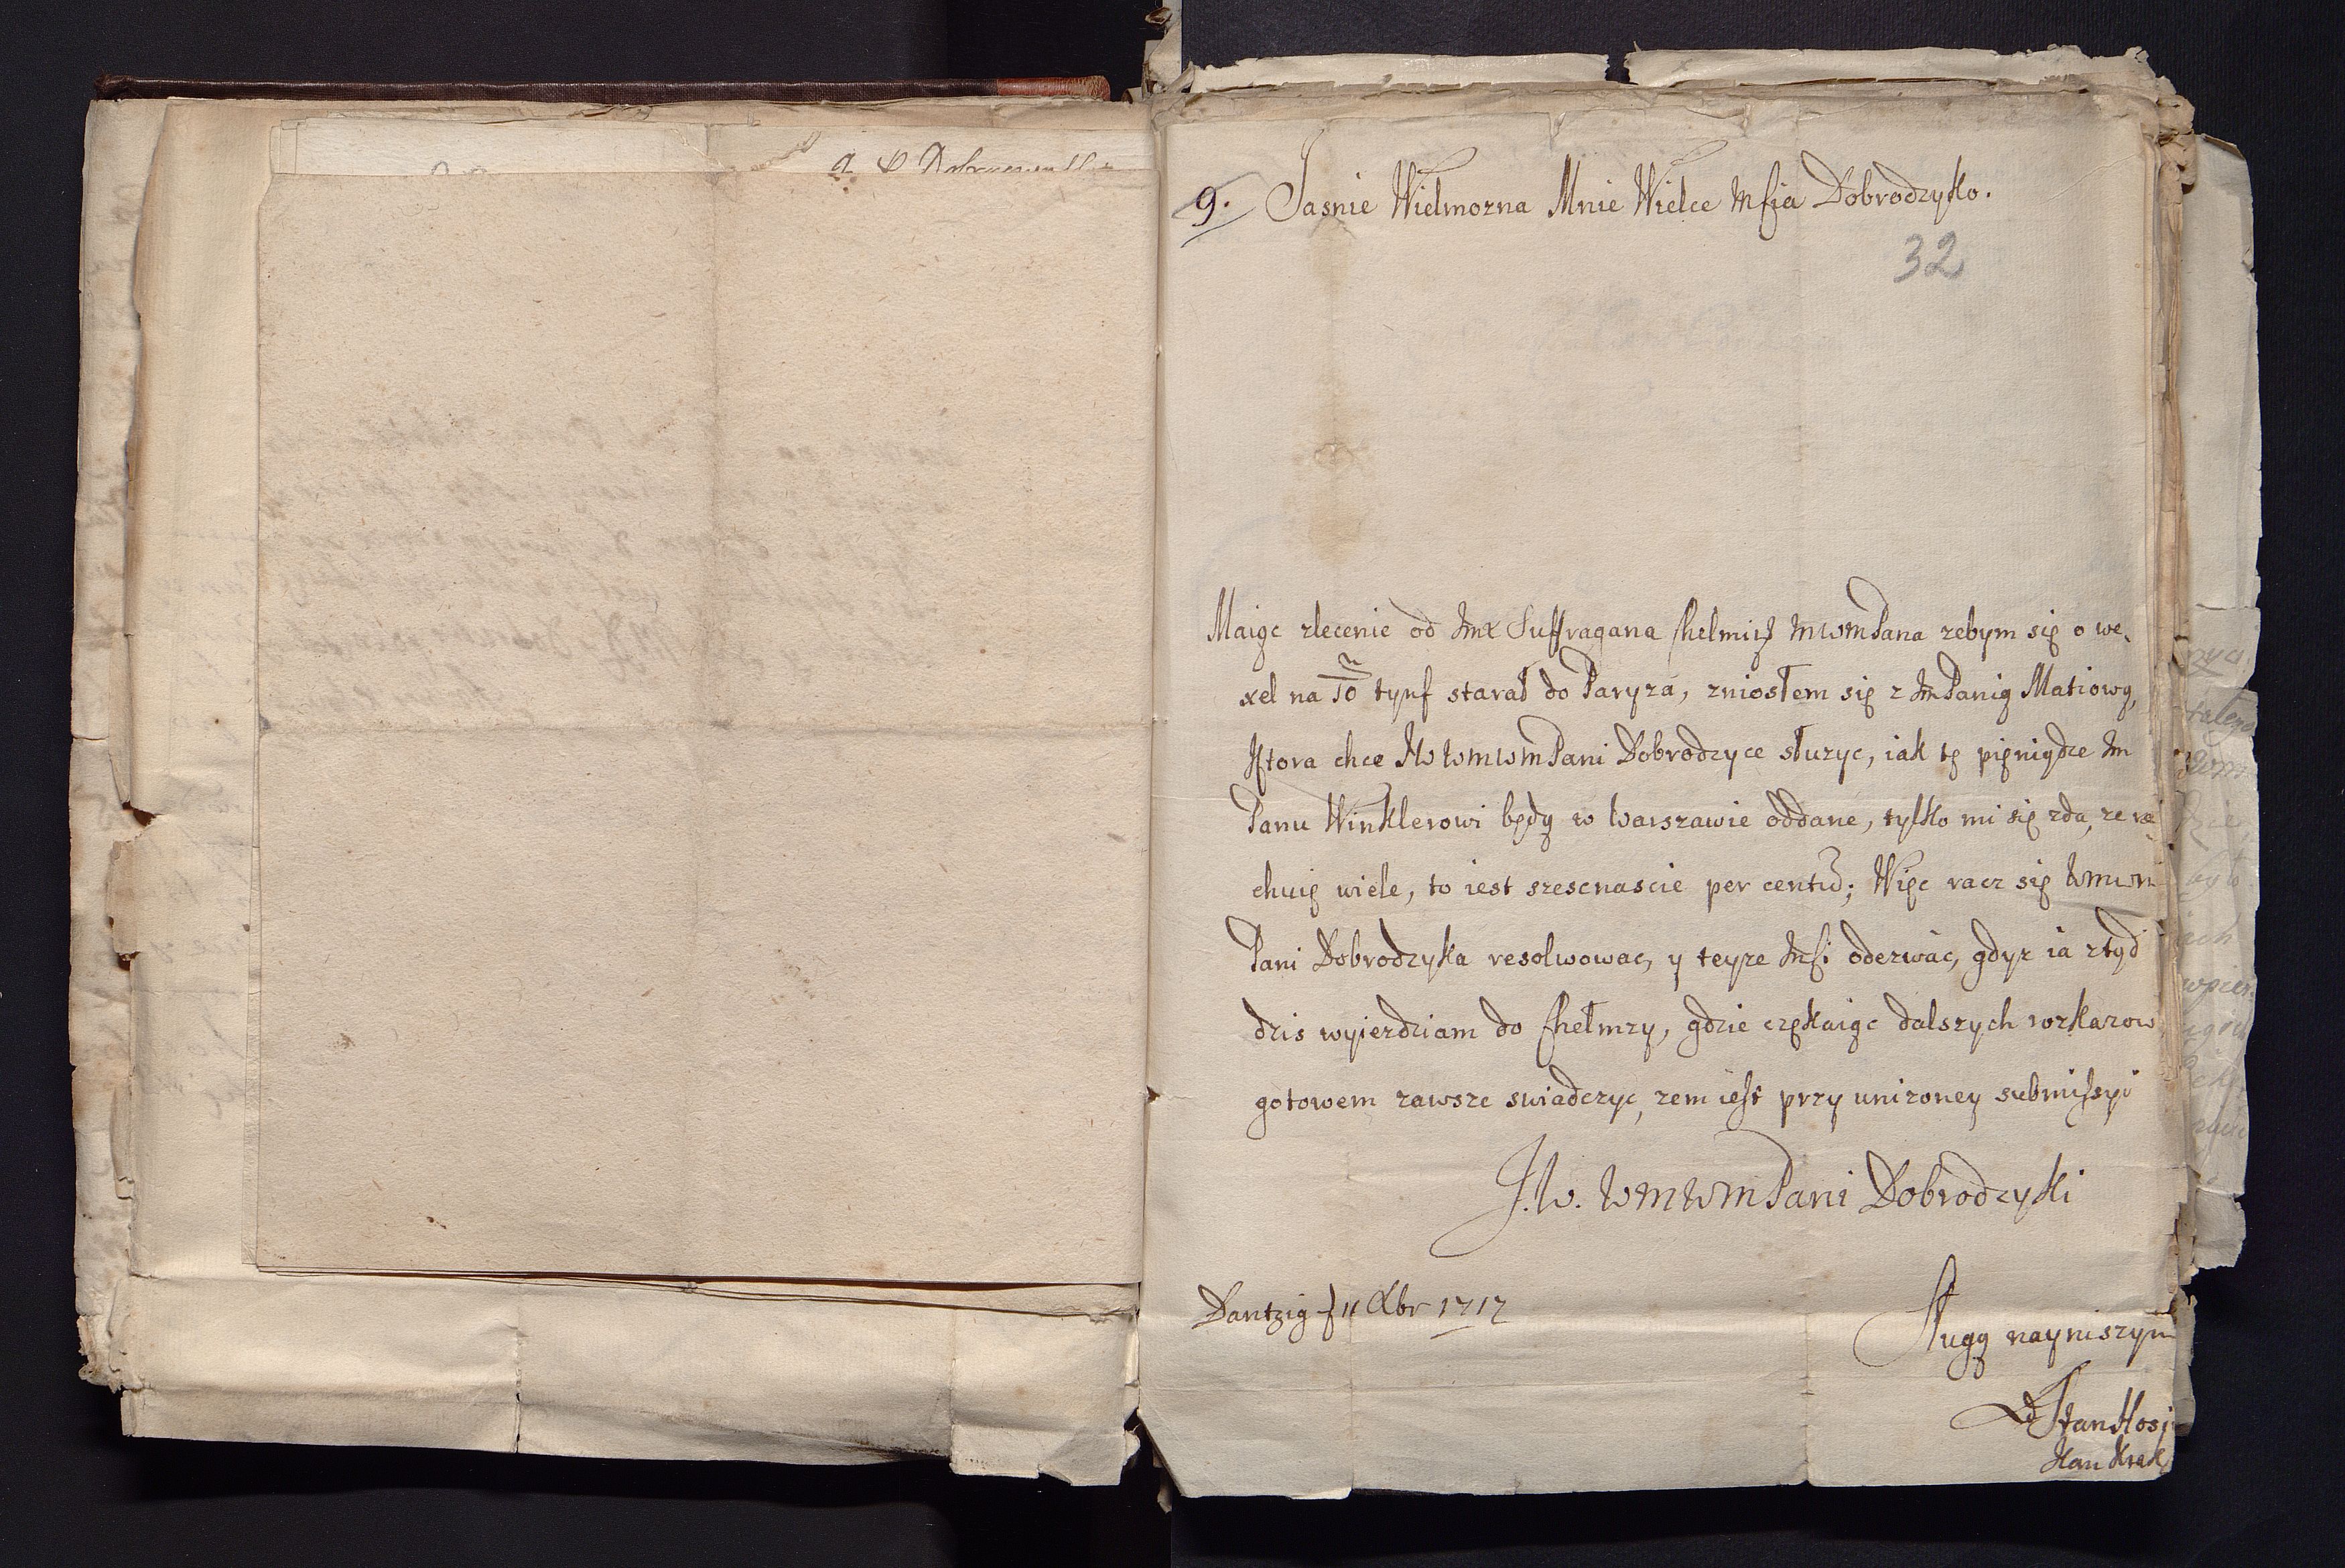 9. Jasnie Wielmozna Mnie Wielce Mscia Dobrodzyko.
32
Maiąc zlecenie od Jmx Suffragana Chelmiz MWMPana zebym się o we„
xel na 10 tynf starał do Paryza, zniosłem się z JmPanią Matiową,
Ktora chce JW WMWMPani Dobrodzyce słuzyc, iak tę pięniądze Jm
Panu Winklerowi będą w Warszawie oddane, tylko mi się zda, ze ra„
chuię wiele, to iest szesnascie per centu; Więc racz się WMWM
Pani Dobrodzyka resolwowac, y teyze Msci odezwac, gdyz ia ztąd
dzis wyiezdziam do Chełmzy, gdzie czękaiąc dalszych rozkazow
gotowem zawsze swiadczyc, zem iest przy unizoney submissyi
J.W. WMWMPani Dobrodzyki
Dantzig 11 Xbr 1717
Sługą nayniszym
Stan Hosj
Kan Krak